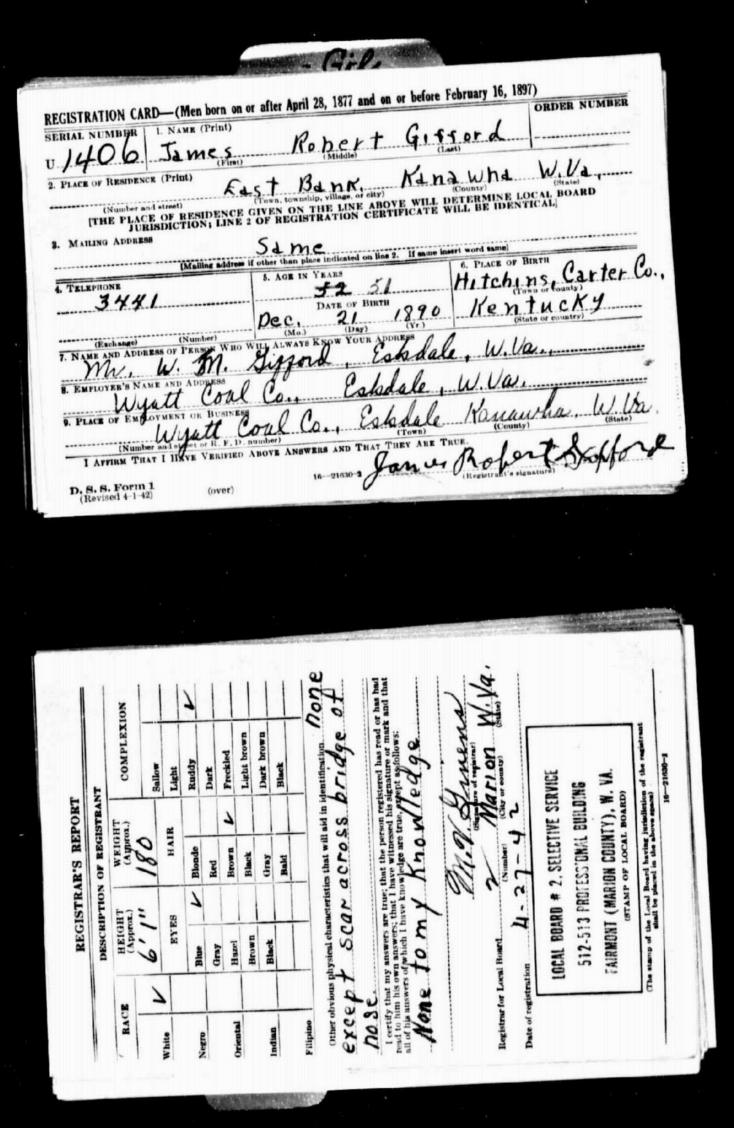 REGISTRATION CARD—(Men born on or after April 28, 1877 and on or before February 16, 1897)
SERIAL NUMBER
1. NAME (Print)
ORDER NUMBER
U 1406 James Robert Gifford
(First) (Middle) (Last)
2. PLACE OF RESIDENCE (Print)
East Bank, Kanawha W.Va.
(Number and street) (Town, township, village, or city) (County) (State)
[THE PLACE OF RESIDENCE GIVEN ON THE LINE ABOVE WILL DETERMINE LOCAL BOARD
JURISDICTION; LINE 2 OF REGISTRATION CERTIFICATE WILL BE IDENTICAL]
3. MAILING ADDRESS
Same
[Mailing address if other than place indicated on line 2. If same insert word same]
4. TELEPHONE
3441
(Exchange) (Number)
5. AGE IN YEARS
52 51
DATE OF BIRTH
Dec. 21 1890
(Mo.) (Day) (Yr.)
6. PLACE OF BIRTH
Hitchins, Carter Co.,
(Town or county)
Kentucky
(State or country)
7. NAME AND ADDRESS OF PERSON WHO WILL ALWAYS KNOW YOUR ADDRESS
Mr. W. M. Gifford, Eskdale, W.Va.,
8. EMPLOYER'S NAME AND ADDRESS
Wyatt Coal Co., Eskdale, W.Va.
9. PLACE OF EMPLOYMENT OR BUSINESS
Wyatt Coal Co., Eskdale Kanawha, W.Va.
(Number and street or R. F. D. number) (Town) (County) (State)
I AFFIRM THAT I HAVE VERIFIED ABOVE ANSWERS AND THAT THEY ARE TRUE.
James Robert Gifford
D. S. S. Form 1
(Revised 4-1-42)
(over)
16—21630-2
(Registrant's signature)
REGISTRAR'S REPORT
DESCRIPTION OF REGISTRANT
RACE
HEIGHT
(Approx.)
WEIGHT
(Approx.)
COMPLEXION
White ✓
6' 1"
180
Sallow
Light
Negro
EYES
HAIR
Ruddy ✓
Blue ✓
Blonde
Dark
Oriental
Gray
Red
Freckled
Hazel
Brown ✓
Light brown
Indian
Brown
Black
Dark brown
Black
Gray
Black
Filipino
Bald
Other obvious physical characteristics that will aid in identification none
except scar across bridge of
nose.
I certify that my answers are true; that the person registered has read or has had
read to him his own answers; that I have witnessed his signature or mark and that
all of his answers of which I have knowledge are true, except as follows:
None to my Knowledge
M. V. Givens
(Signature of registrar)
Registrar for Local Board 2 Marion W.Va.
(Number) (City or county) (State)
Date of registration 4-27-42
LOCAL BOARD # 2, SELECTIVE SERVICE
512-513 PROFESSIONAL BUILDING
FAIRMONT (MARION COUNTY), W. VA.
(STAMP OF LOCAL BOARD)
(The stamp of the Local Board having jurisdiction of the registrant
shall be placed in the above space)
16—21630-2